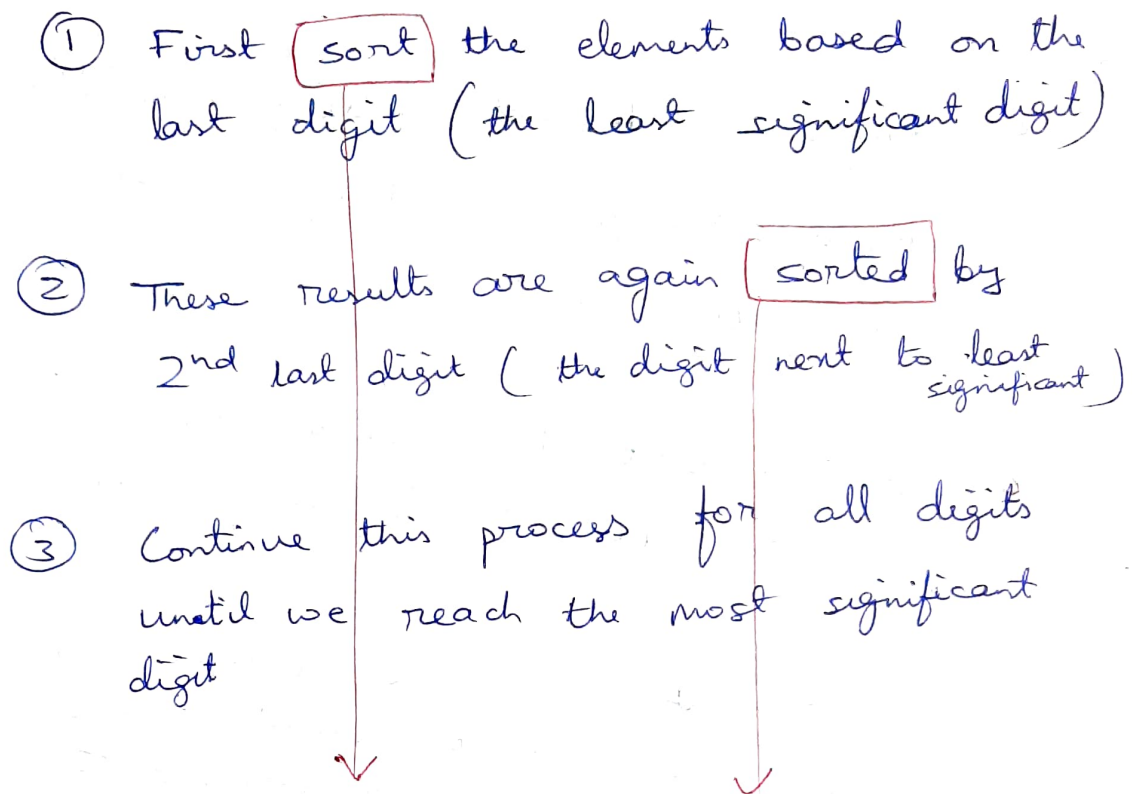 ① First sort the elements based on the
last digit (the least significant digit)
② These results are again sorted by
2nd last digit ( the digit next to least
significant )
③ Continue this process for all digits
until we reach the most significant
digit